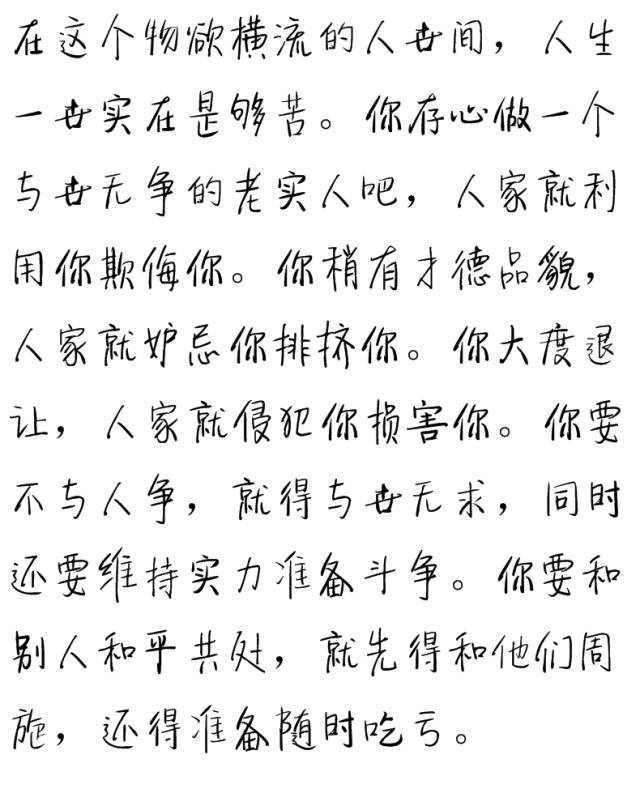 在这个物欲横流的人世间，人生
一世实在是够苦。你存心做一个
与世无争的老实人吧，人家就利
用你欺侮你。你稍有才德品貌，
人家就妒忌你排挤你。你大度退
让，人家就侵犯你损害你。你要
不与人争，就得与世无求，同时
还要维持实力准备斗争。你要和
别人和平共处，就先得和他们周
旋，还得准备随时吃亏。